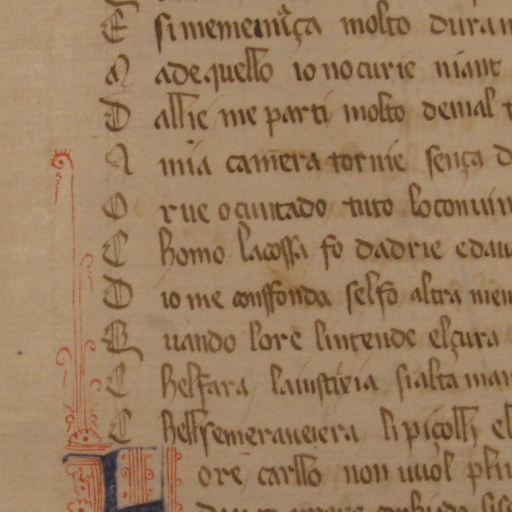 E si me menaça molto duram
M a de quello io no curie niant
D allie me parti molto de mal t
A mia camera tornie sença d
O r ve o cuntado tuto lo convin
C homo la cossa fo dadrie e dau
D io me conffonda selfo altra men
Q uando lo re lintende el çura
C hel fara la iustixia si alta man
C helli se meraveiera li piçolli el
L ore carllo non vuol plu